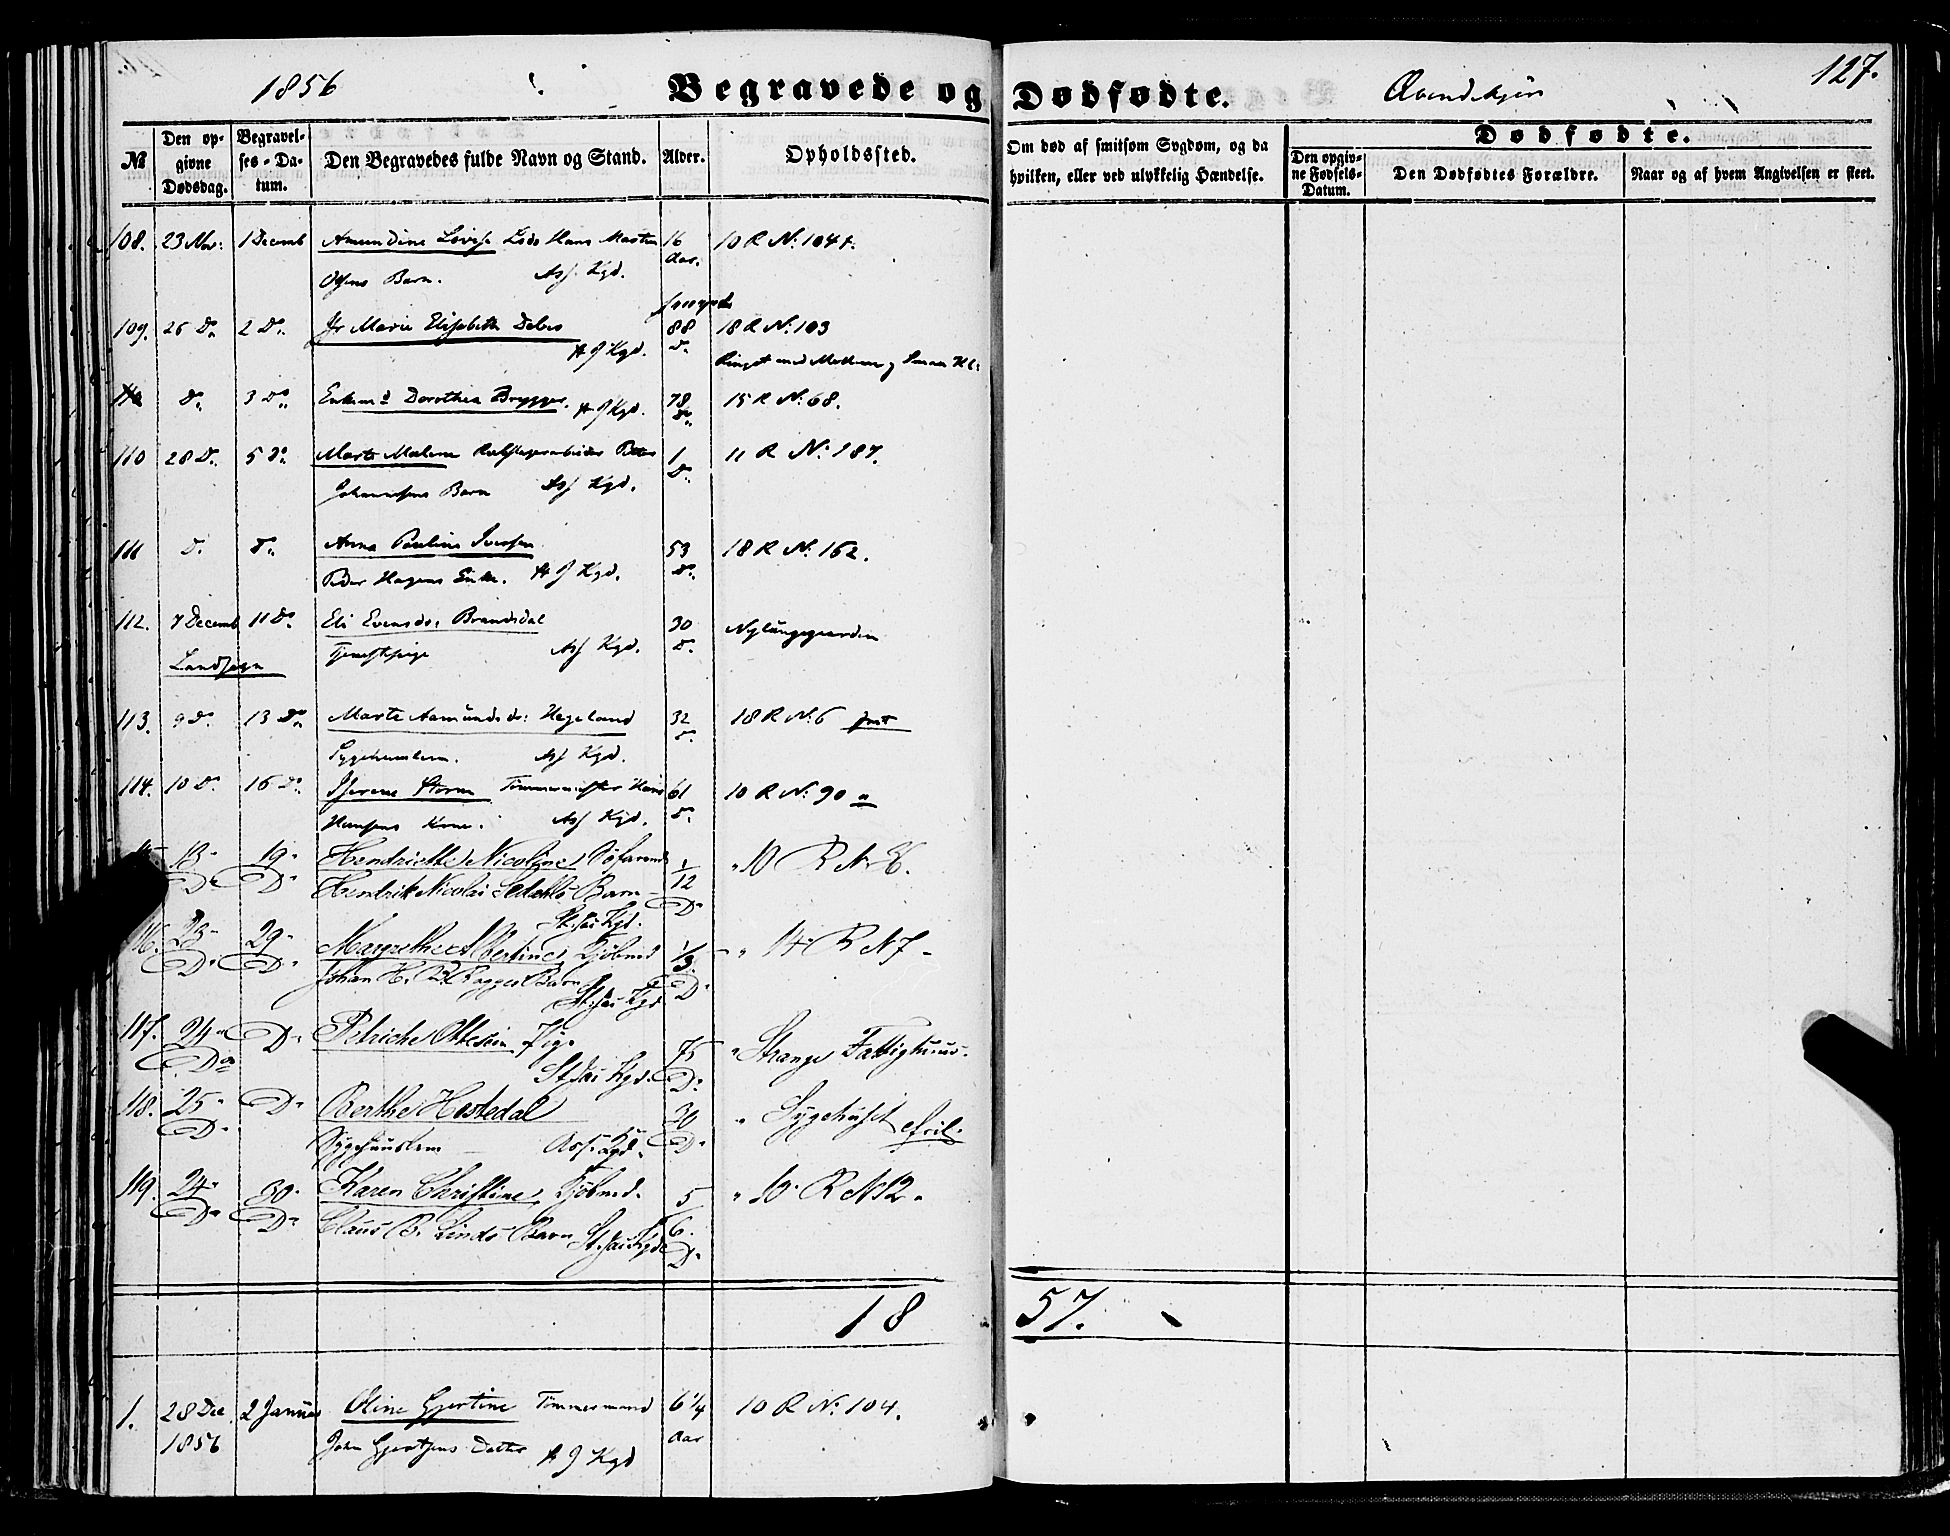 1856 Begravede og Dødfødte. Qvindekjøn 127.
№ Den opgivne Dødsdag. Begravelses-Datum. Den Begravedes fulde Navn og Stand. Alder. Opholdssted. Om død af smitsom Sygdom, og da hvilken, eller ved ulykkelig Hændelse. Dødfødte. Den opgivne Fødsels-Datum. Den Dødfødtes Forældre. Naar og af hvem Angivelsen er skeet.
108. 23 Nov: 1 Decemb Amundine Lovise Lods Hans Martin 16 Aar. 10 R N: 104
Olsens Barn. Ass. Kgd.
109. 26 D: 2 D: Jfr Marie Elisabeth 88 D: 18 R N: 103
St J Kgd.
D: 3 D: Enkemd Dorothea Brygger. St J Kgd. 78 D: 15 R N: 68.
110 28 D: 5 D: Marte Malene Peter 1 D: 11 R N: 187.
Johannesens Barn Ass Kgd.
111 D: D: Anna Pauline Iversen 53 D: 18 R N: 162.
Peder Hagens Enke. St J Kgd.
112. 7 Decemb 11 D: Eli Evensdr: Brandsdal 30 D: Nylungegaarden
Landsogn Tjenestepige Ass Kgd.
113. 9 D: 13 D: Marte Aamundsdr: Hegeland 32 D: 18 R N: 6
Sygehuuslem. Ass Kgd.
114. 10 D: 16 D: Storm Tømmermester Hans 61 D: 10 R N: 90 a
Hansens Kone. Ass Kgd.
13 D: 19 D: Hendriette Nicoline, Søfarende 1/12 D: 10 R N:
Hendrik Nicolai Barn
St. Jac Kgd.
116. 23 D: 29 D: Margrethe Albertine, Kjøbmd 1/3 D: 14 R N 7
Johan H. Barn
St. Jac Kgd
117. 24 D: D: Petriche Ottesen Pige 75 D: Strange Fattighuus.
St Jac Kgd.
118. 25 D: D: Berthe Hestedal 30 D: Sygehuset
Sygehuuslem Ass. Kgd.
119. 24 D: 30 D: Karen Christine, Kjøbmd. 5/6 D: 10 R N 12
Claus B. Linds Barn St. Jac Kgd
18 57.
1. 28 Dec 1856 2 Januar Oline Gjertine Tømmermand 6 1/4 Aar 10 R N: 104.
John Gjertsens Datter St J Kgd